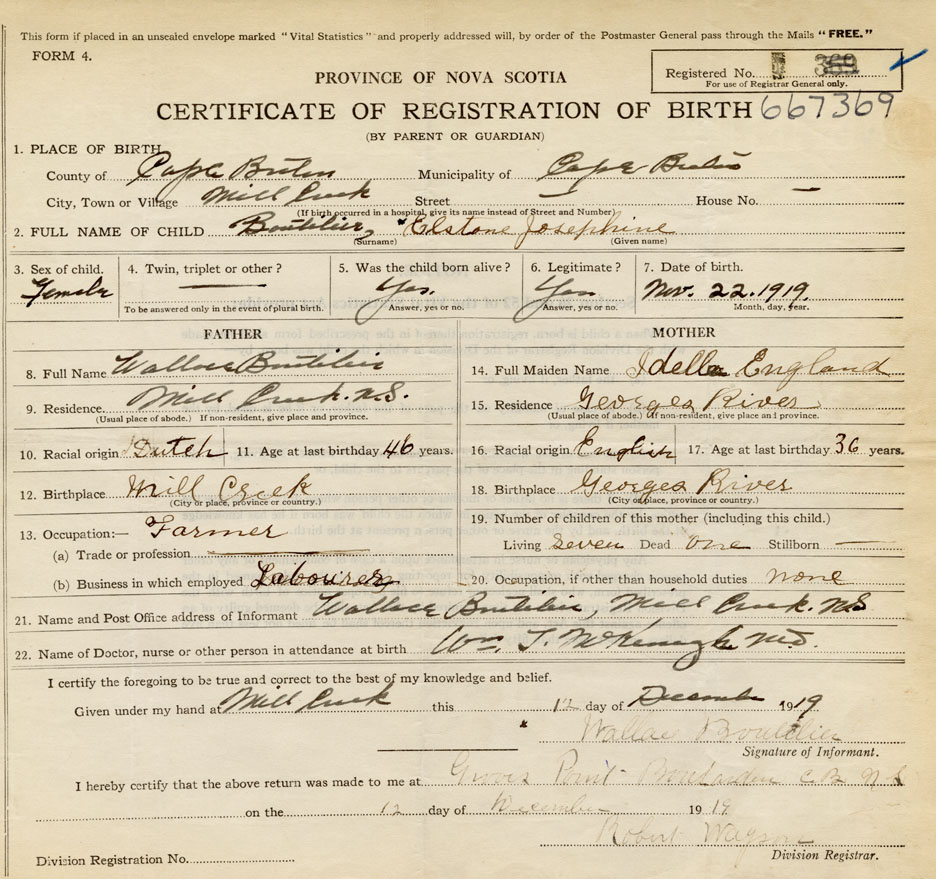 This form if placed in an unsealed envelope marked "Vital Statistics" and properly addressed will, by order of the Postmaster General pass through the Mails "FREE."
FORM 4.
Registered No. 369
For use of Registrar General only.
PROVINCE OF NOVA SCOTIA
CERTIFICATE OF REGISTRATION OF BIRTH 667369
(BY PARENT OR GUARDIAN)
1. PLACE OF BIRTH
County of Cape Breton Municipality of Cape Breton
City, Town or Village Mill Creek Street — House No. —
(If birth occurred in a hospital, give its name instead of Street and Number)
2. FULL NAME OF CHILD Boutilier, Elstone Josephine
(Surname) (Given name)
3. Sex of child. 4. Twin, triplet or other? 5. Was the child born alive? 6. Legitimate? 7. Date of birth.
Female — Yes. Yes Nov. 22. 1919.
To be answered only in the event of plural birth. Answer, yes or no. Answer, yes or no. Month, day, year.
FATHER MOTHER
8. Full Name Wallace Boutilier 14. Full Maiden Name Idella England
9. Residence. Mill Creek. N.S. 15. Residence Georges River
(Usual place of abode.) If non-resident, give place and province. (Usual place of abode.) If non-resident, give place and province.
10. Racial origin Dutch 11. Age at last birthday 46 years. 16. Racial origin English 17. Age at last birthday 36 years.
12. Birthplace Mill Creek 18. Birthplace Georges River
(City or place, province or country.) (City or place, province or country.)
13. Occupation:— Farmer 19. Number of children of this mother (including this child.)
(a) Trade or profession — Living seven Dead one Stillborn —
(b) Business in which employed Labourer 20. Occupation, if other than household duties none
21. Name and Post Office address of Informant Wallace Boutilier, Mill Creek. N.S
22. Name of Doctor, nurse or other person in attendance at birth Wm. J. McKeough M.D.
I certify the foregoing to be true and correct to the best of my knowledge and belief.
Given under my hand at Mill Creek this 12 day of December 1919.
Wallace Boutilier
Signature of Informant.
I hereby certify that the above return was made to me at Groves Point C B N S
on the 12 day of December 1919
Robert
Division Registrar.
Division Registration No.